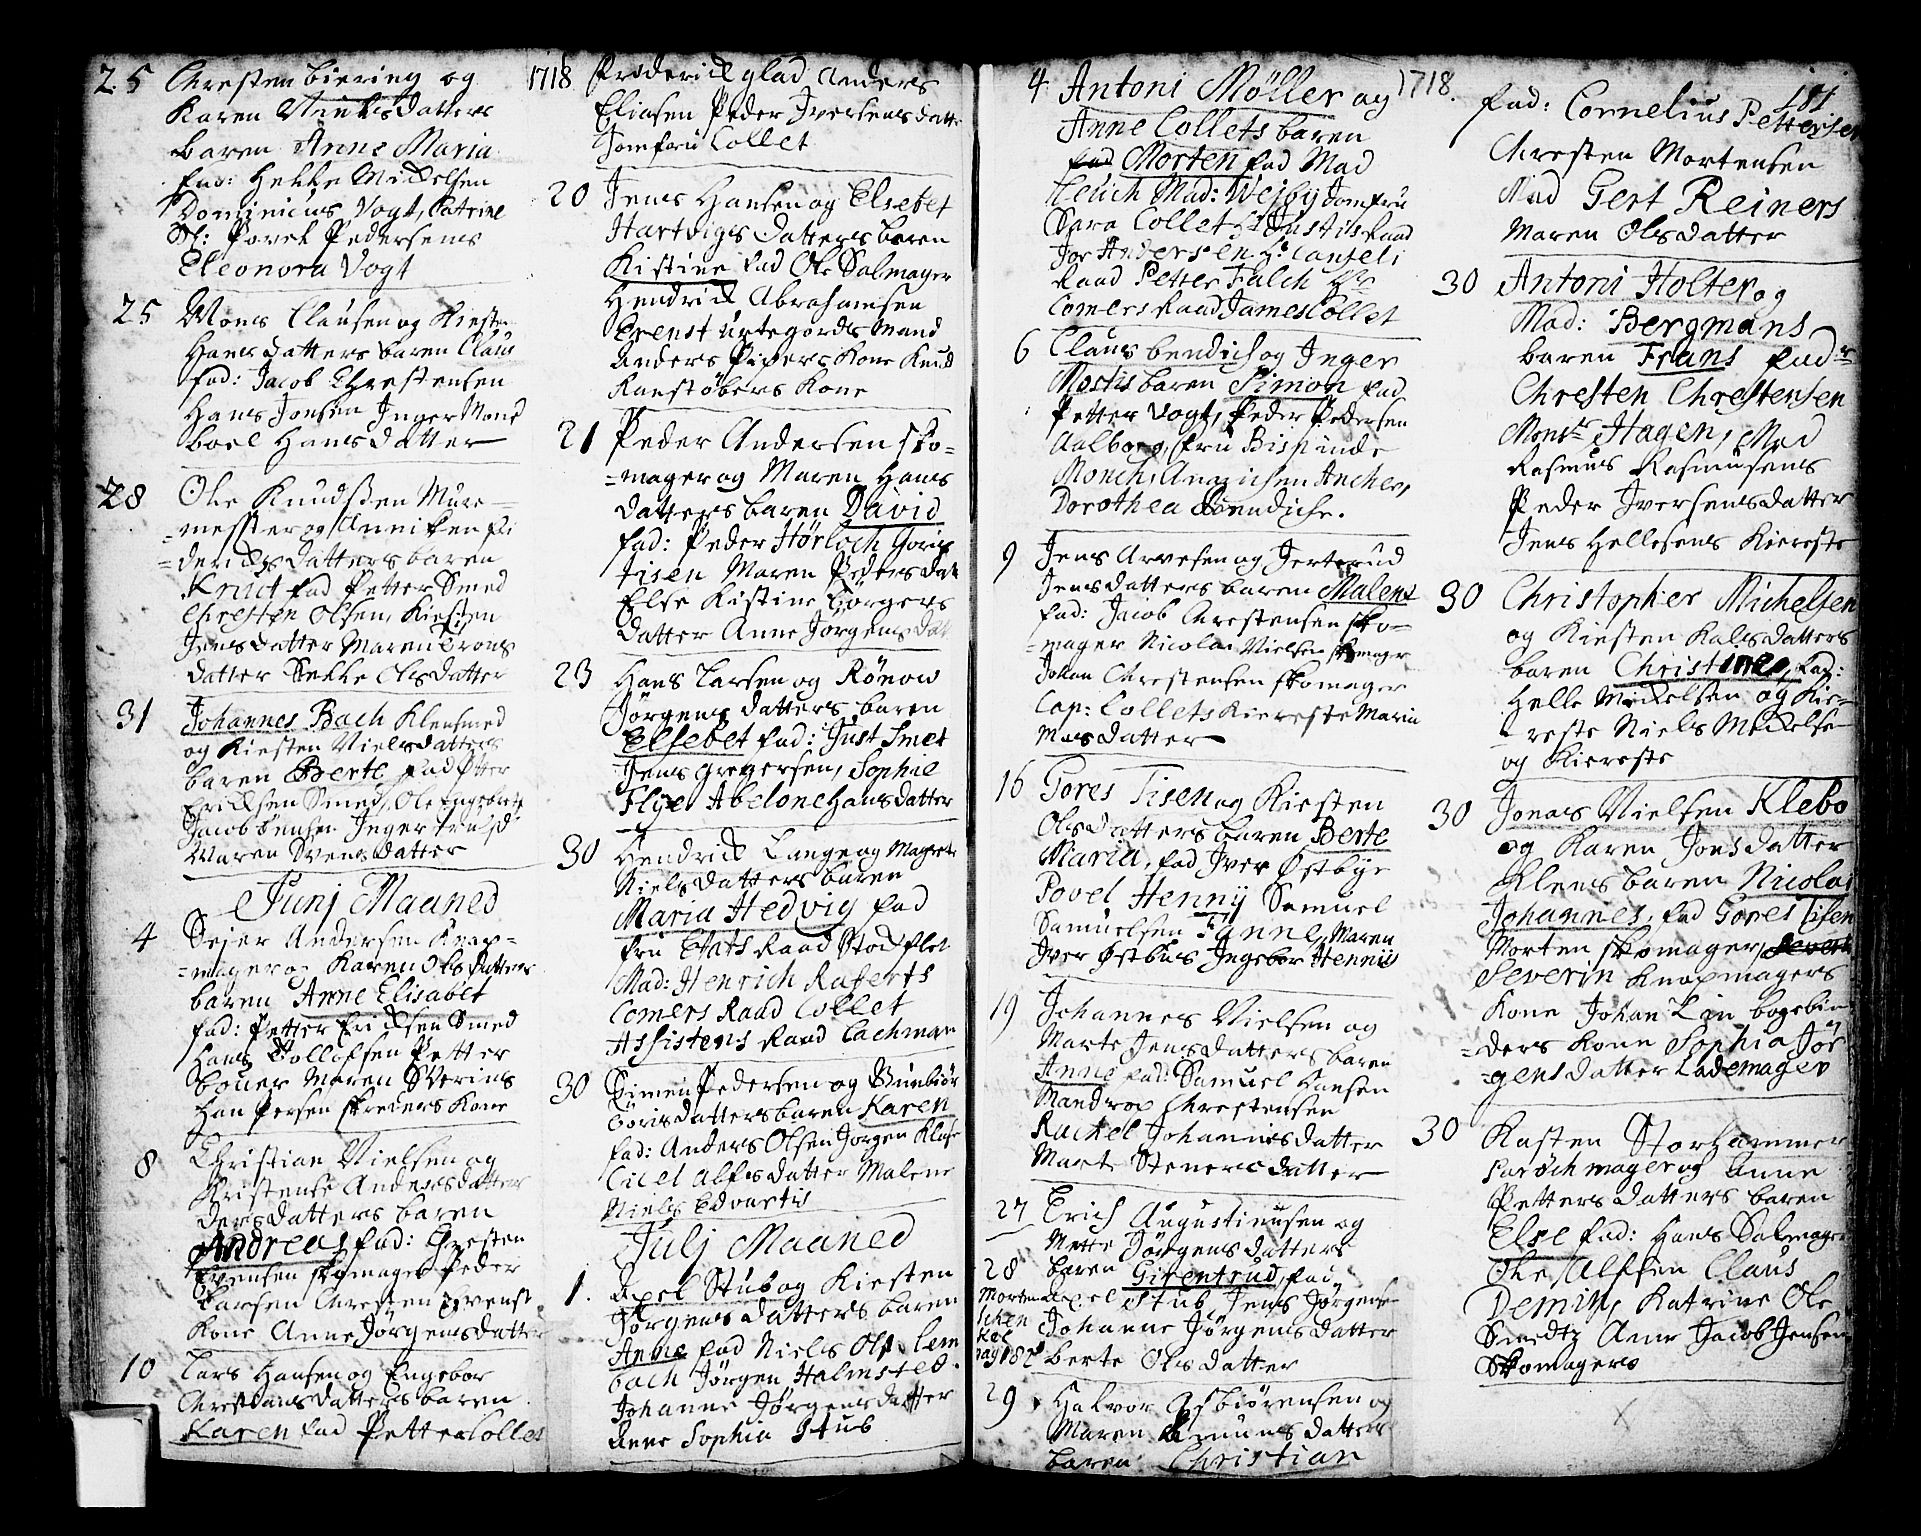 25 Chresten Biering og
Karen datters
baren Anne Maria
fad: Helle Mickelsen
Dominicus Vogt, Catrine
Sl: Povel Pedersens
Eleonora Vogt
25 Mons Clausen og Kiesten
Hans datters baren Claus
fad: Jacob Chrestensen
Hans Jonsen Inger Mons
boel Hansdatter
28 Ole Knudsen Mure-
=mester og Anniken fri
=dericks datters baren
Knut fad Petter Smed
Chresten Olsen, Kiesten
Jensdatter Maren Trons
datter Sekke Olsdatter
31 Johannes Bach Klensmed
og Kiesten Nielsdatters
baren Berte fad Petter
Ericksen Smed, Ole Engebrets
Jacob Jensen Inger
Maren Svensdatter
Junj Maaned
4 Sejer Andersen Knap-
=mager og Karen Olsdatters
baren Anne Elisabet
fad: Petter Ericksen Smed
Hans Tollofsen Petter
bouer Maren Sverins
Han Persen skreders Kone
8 Christian Nielsen og
Kristense Anders datters
ders datters baren
Andreas fad: Chresten
Evensen skomager Peder
Larsen Chresten Evens
Kone Anne Jørgensdatter
10 Lars Hansen og Engebor
Chrestians datters baren
Karen fad Petter Colles
1718 frederick glad Anders
Eliasen Peder Iversensdatte
Jomfru Collet
20 Jens Hansen og Elsebet
Hartvigs datters baren
Kistine fad Ole Salmager
Hendrick Abrahamsen
Ernst urtegords Mand
Anders Pipers Kone Knud
Ranstøbers Kone
21 Peder Andersen sko-
=mager og Maren Hans
datters baren David
fad: Peder Hørloch Goris
Tisen Maren Pedersdat
Else Kistine Gorgers
datter Anne Jørgensdatt
23 Hans Larsen og Rønow
Jørgens datters baren
Elsebet fad: Just Smet
Jens Gregersen, Sophie
Flyer Abelone Hansdatter
30 Hendrick Lange og Magrete
Niels datters baren
Maria Hedvig fad
fru Etats Raad Stockflet
Mad: Henrich Raferts
Comers Raad Collet
Assistens Raad Lachman
30 Simen Pedersen og Gunbiør
Goris datters baren Karen
fad: Anders Olsen Jørgen Kluse
Cicel Alfsdatter Malene
Niels Edvartis
Julj Maaned
1. Axel Stub og Kiesten
Jørgens datters baren
Anne fad Niels Ols lem
bach Jørgen Halmsted.
Johanne Jørgensdatter
Anne Sophia Stub
4 Antoni Møller og
Anne Collets baren
Morten fad Mad
Leuch Mad: Wesby Jomfru
Sara Collet Hr Justits Raad
Jor Andersen Hr Canseli
Raad Petter Falch Hr
Comers Raad James Collet
6 Claus bendich og Inger
Mostis baren Simon fad
Petter Vogt, Peder Pedersen
Aalborg, fru Bispinde
Monch, Ancher,
Dorothea Bendiche.
9 Jens Arvesen og Jertrud
Jens datters baren Malene
fad: Jacob Chrestensen sko-
=mager Nicolai Nielsen skomager
Johan Chrestensen skomager
Cap: Collets Kiereste Maria
Masdatter
16 Gores Tisen og Kiesten
Ols datters baren Berte
Maria, fad Iver Østbye
Povel Henny Samuel
Samuelsen Fanne, Maren
Iver Østbus Ingebor Hennies
19 Johannes Nielsen og
Marte Jens datters baren
Anne fad: Samuel Hansen
Mandrop Chrestensen
Rachel Johannisdatter
Marte Stenersdatter
27 Erich Augustinusen og
Mette Jørgens datters
28 baren Girentrud, fad
Axel Stub, Jens Jørgense
Johanne Jørgensdatter
berte Olsdatter
Morten
schen
kel
pag 187
29 Halvor Asbiørensen og
Maren Amuns datters
baren Christian
1718. 181
fad: Cornelius Pettersen
Chresten Mortensen
Mad Gert Reiners
Maren Olsdatter
30 Antoni Holter og
Mad: Bergmans
baren Frans fadr
Chresten Chrestensen
Monsr Hagen, Mad
Rasmus Rasmusens
Peder Iversensdatter
Jens Hellesens Kiereste
30 Christopher Michelsen
og Kiesten Kalsdatters
baren Christine, fad:
Helle Mickelsen og Kie-
=reste Niels Mickelse
og Kiereste
30 Jonas Nielsen Klebo
og Karen Jonsdatter
Klens baren Nicolai
Johannes, fad Gores Tisen
Morten skomager,
Severin Knapmagers
Kone Johan Lin bogebin
=ders Kone Sophia Jør
=gensdatter Lademager
30 Kasten Storhammer
Parøchmager og Anne
Petters datters baren
Else fad: Hans Salmager
Ole Alfsen Claus
Demin, Katrine Ole
Smedtz Anne Jacob Jensen
Skomagers